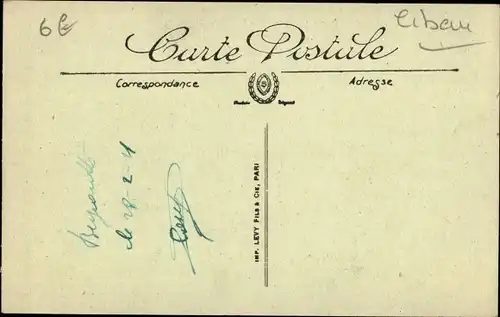 6 €
Liban
Carte Postale
Correspondance
Adresse
IMP. LEVY FILS & CIE, PARI
le 28-2-21